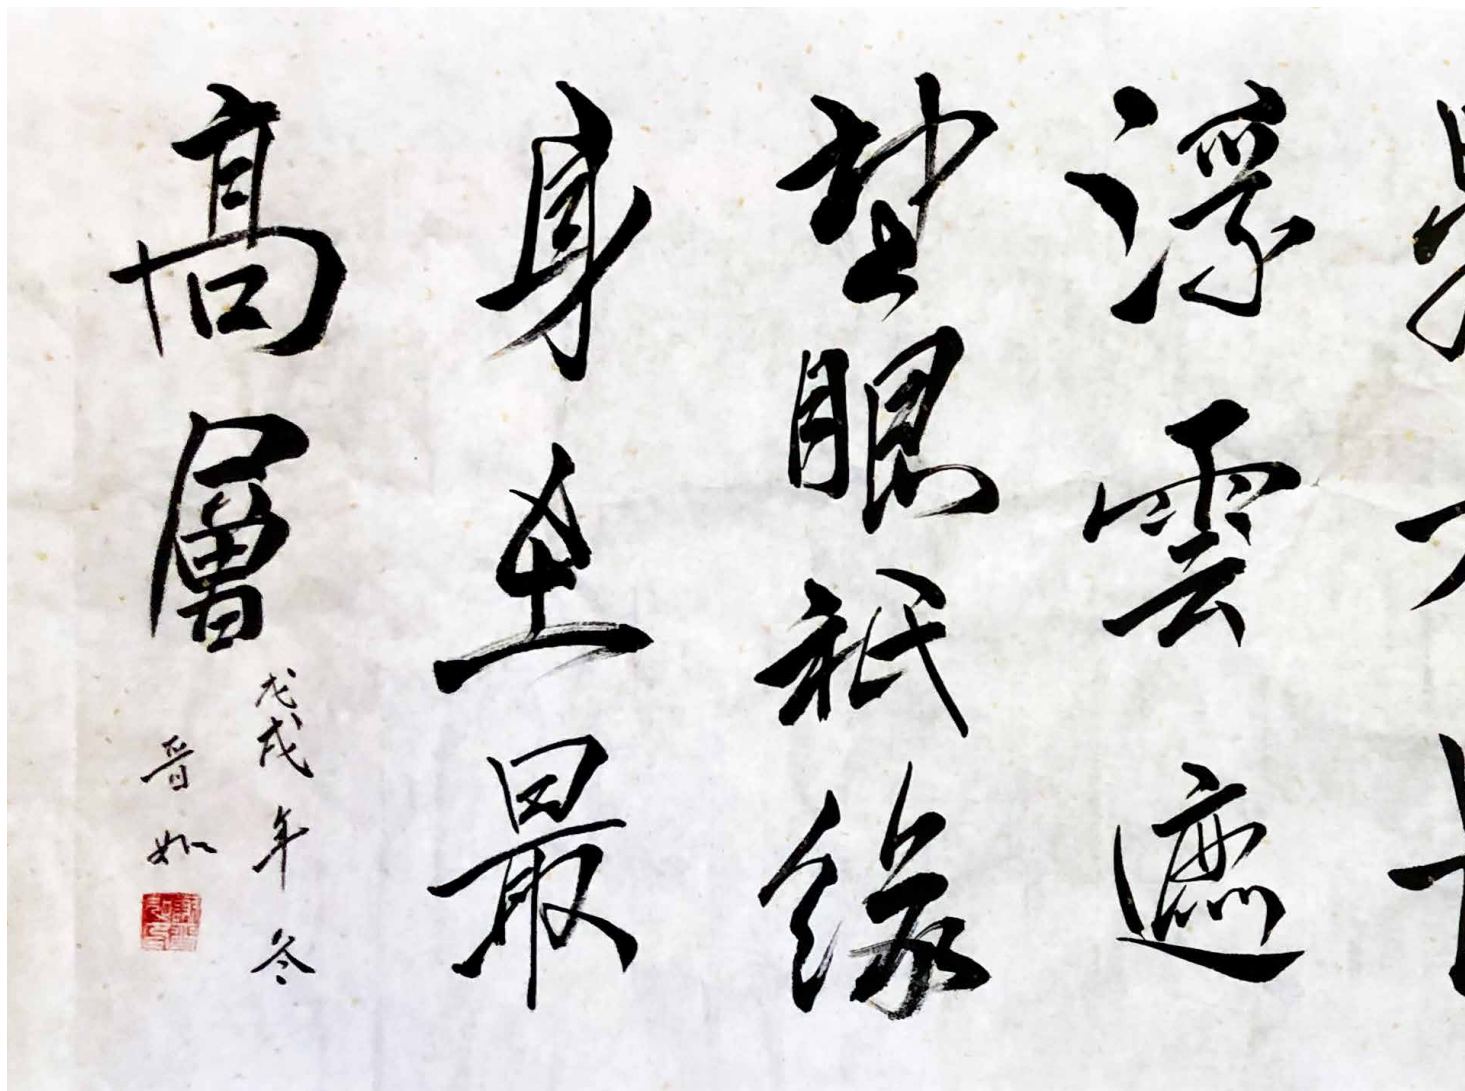 浮雲遮
望眼祇緣
身在最
高層
戊戌年冬
晋如